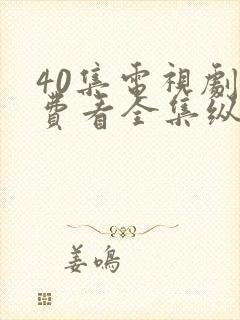 40集電視劇
費看全集纵
姜鸣